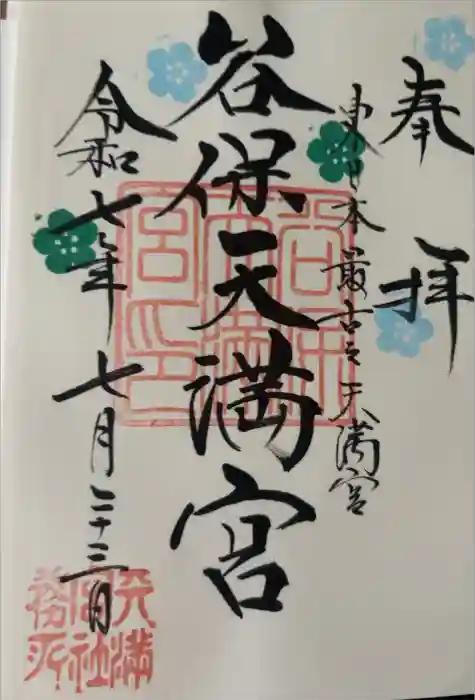 奉拝
東日本最古之天満宮
谷保天満宮
令和七年七月二十三日
谷保天満宮印
天満宮社務所